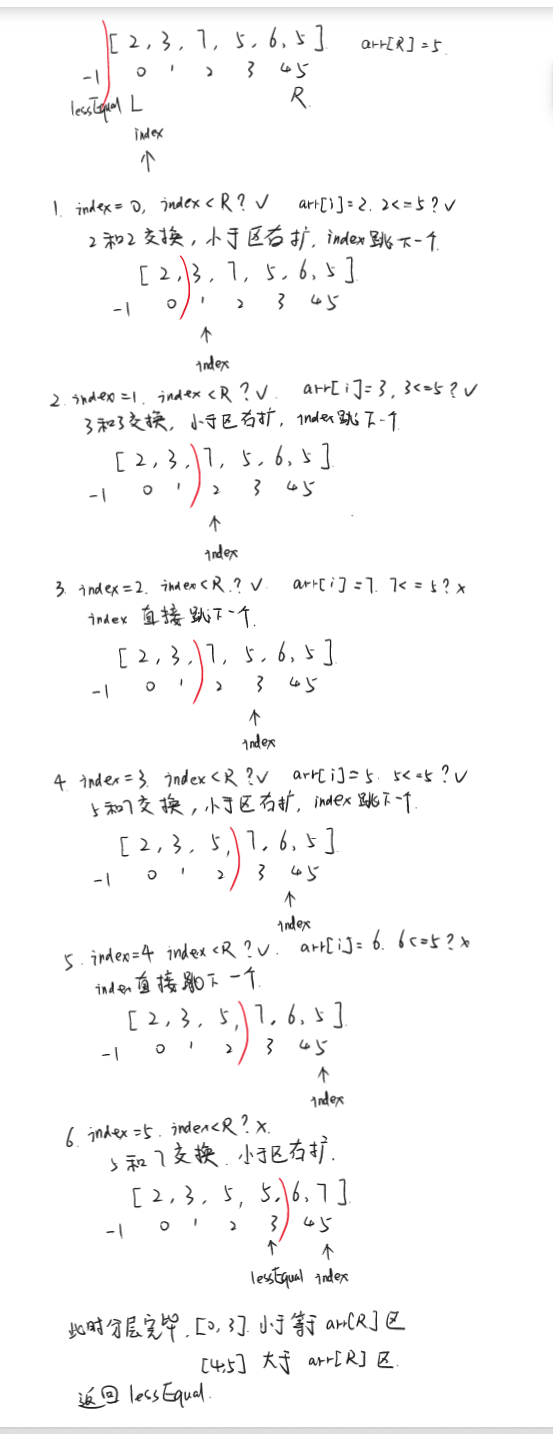 [2, 3, 7, 5, 6, 5] arr[R]=5
-1 0 1 2 3 4 5
lessEqual L R
index
↑
1. index=0, index<R?√ arr[i]=2. 2<=5?√
2和2交换, 小于区右扩, index跳下一个
[2, 3, 7, 5, 6, 5]
-1 0 1 2 3 4 5
↑
index
2. index=1. index<R?√. arr[i]=3, 3<=5?√
3和3交换, 小于区右扩, index跳下一个
[2, 3, 7, 5, 6, 5]
-1 0 1 2 3 4 5
↑
index
3. index=2. index<R.?√. arr[i]=7. 7<=5?×
index 直接跳下一个.
[2, 3, 7, 5, 6, 5]
-1 0 1 2 3 4 5
↑
index
4. index=3. index<R?√ arr[i]=5. 5<=5?√
5和7交换, 小于区右扩, index跳下一个.
[2, 3, 5, 7, 6, 5]
-1 0 1 2 3 4 5
↑
index
5. index=4 index<R?√. arr[i]=6. 6<=5?×
index直接跳下一个.
[2, 3, 5, 7, 6, 5]
-1 0 1 2 3 4 5
↑
index
6. index=5. index<R?×.
5和7交换. 小于区右扩.
[2, 3, 5, 5, 6, 7]
-1 0 1 2 3 4 5
↑ ↑
lessEqual index
此时分层完毕. [0, 3] 小于等于 arr[R] 区
[4,5] 大于 arr[R] 区.
返回 lessEqual.